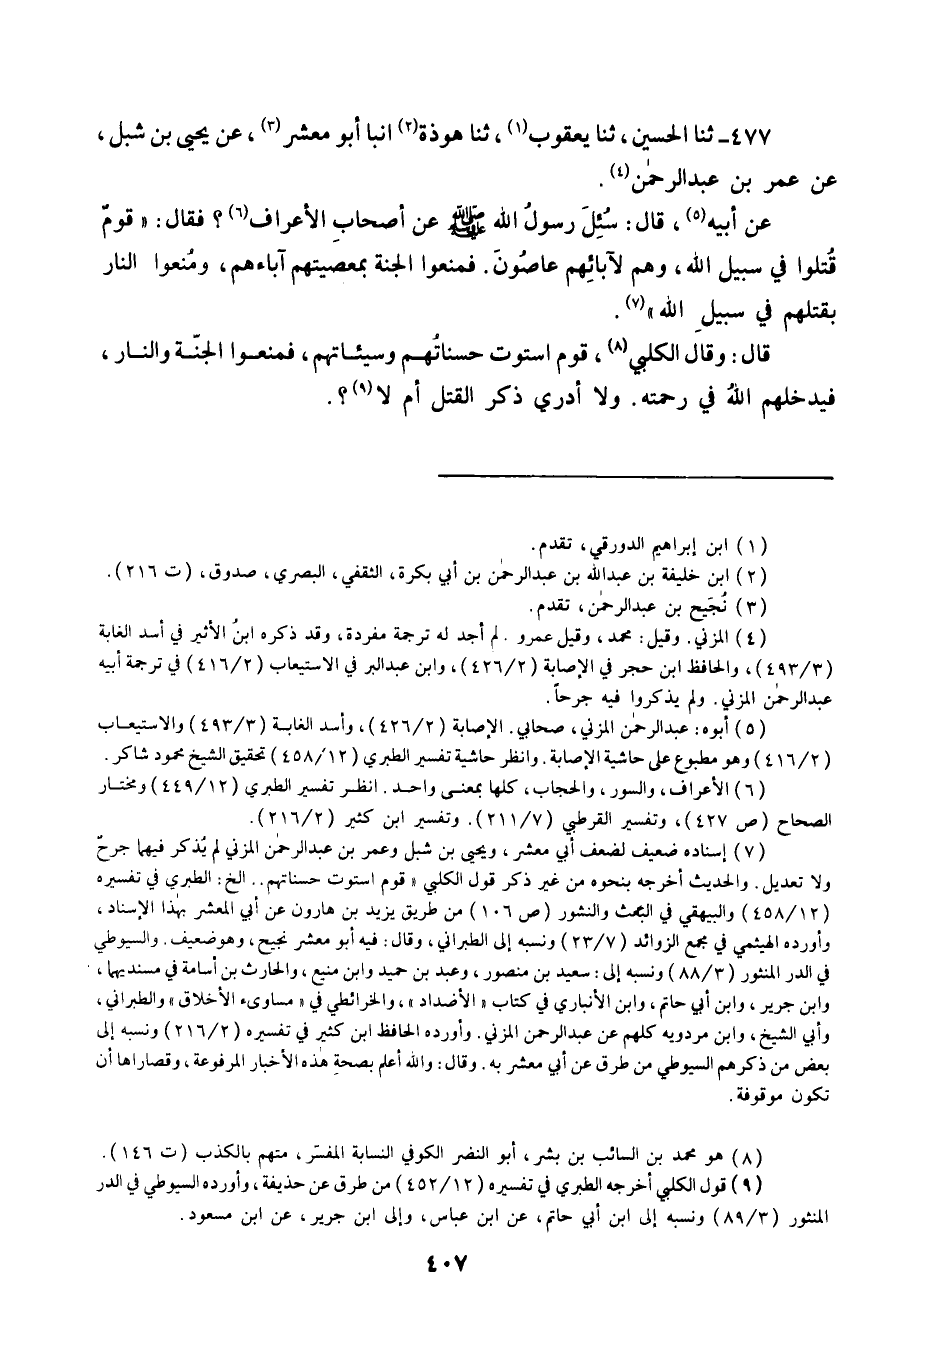 ٤٧٧ـ ثنا الحسين، ثنا يعقوب(١)، ثنا هوذة(٢) انبا أبو معشر(٣)، عن يحيى بن شبل،
عن عمر بن عبدالرحمٰن(٤).
عن أبيه(٥)، قال: سُئِلَ رسولُ الله ﷺ عن أصحابِ الأعراف(٦)؟ فقال: «قومٌ
قُتلوا في سبيل الله، وهم لآبائِهم عاصُونَ. فمنعوا الجنة بمعصيتهم آباءهم، ومُنعوا النار
بقتلهم في سبيلِ الله»(٧).
قال: وقال الكلبي(٨)، قوم استوت حسناتُهم وسيئاتهم، فمنعوا الجنّة والنار،
فيدخلهم اللهُ في رحمته. ولا أدري ذكر القتل أم لا(٩)؟.
(١) ابن إبراهيم الدورقي، تقدم.
(٢) ابن خليفة بن عبدالله بن عبدالرحمٰن بن أبي بكرة، الثقفي، البصري، صدوق، (ت ٢١٦).
(٣) نُجَيح بن عبدالرحمٰن، تقدم.
(٤) المزني. وقيل: محمد، وقيل عمرو. لم أجد له ترجمة مفردة، وقد ذكره ابنُ الأثير في أسد الغابة
(٤٩٣/٣)، والحافظ ابن حجر في الإصابة (٤٢٦/٢)، وابن عبدالبر في الاستيعاب (٤١٦/٢) في ترجمة أبيه
عبدالرحمٰن المزني. ولم يذكروا فيه جرحاً.
(٥) أبوه: عبدالرحمٰن المزني، صحابي. الإصابة (٤٢٦/٢)، وأسد الغابة (٤٩٣/٣) والاستيعاب
(٤١٦/٢) وهو مطبوع على حاشية الإصابة. وانظر حاشية تفسير الطبري (٤٥٨/١٢) تحقيق الشيخ محمود شاكر.
(٦) الأعراف، والسور، والحجاب، كلها بمعنى واحد. انظر تفسير الطبري (٤٤٩/١٢) ومختار
الصحاح (ص ٤٢٧)، وتفسير القرطبي (٢١١/٧). وتفسير ابن كثير (٢١٦/٢).
(٧) إسناده ضعيف لضعف أبي معشر، ويحيى بن شبل وعمر بن عبدالرحمٰن المزني لم يُذكر فيهما جرحٌ
ولا تعديل. والحديث أخرجه بنحوه من غير ذكر قول الكلبي «قوم استوت حسناتهم.. الخ: الطبري في تفسيره
(٤٥٨/١٢) والبيهقي في البعث والنشور (ص ١٠٦) من طريق يزيد بن هارون عن أبي المعشر بهذا الإسناد،
وأورده الهيثمي في مجمع الزوائد (٢٣/٧) ونسبه إلى الطبراني، وقال: فيه أبو معشر نجيح، وهو ضعيف. والسيوطي
في الدر المنثور (٨٨/٣) ونسبه إلى: سعيد بن منصور، وعبد بن حميد وابن منيع، والحارث بن أسامة في مسنديهما،
وابن جرير، وابن أبي حاتم، وابن الأنباري في كتاب «الأضداد»، والخرائطي في «مساوىء الأخلاق» والطبراني،
وأبي الشيخ، وابن مردويه كلهم عن عبدالرحمن المزني. وأورده الحافظ ابن كثير في تفسيره (٢١٦/٢) ونسبه إلى
بعض من ذكرهم السيوطي من طرق عن أبي معشر به. وقال: والله أعلم بصحة هذه الأخبار المرفوعة، وقصاراها أن
تكون موقوفة.
(٨) هو محمد بن السائب بن بشر، أبو النضر الكوفي النسابة المفسّر، متهم بالكذب (ت ١٤٦).
(٩) قول الكلبي أخرجه الطبري في تفسيره (٤٥٢/١٢) من طرق عن حذيفة، وأورده السيوطي في الدر
المنثور (٨٩/٣) ونسبه إلى ابن أبي حاتم، عن ابن عباس، وإلى ابن جرير، عن ابن مسعود.
٤٠٧